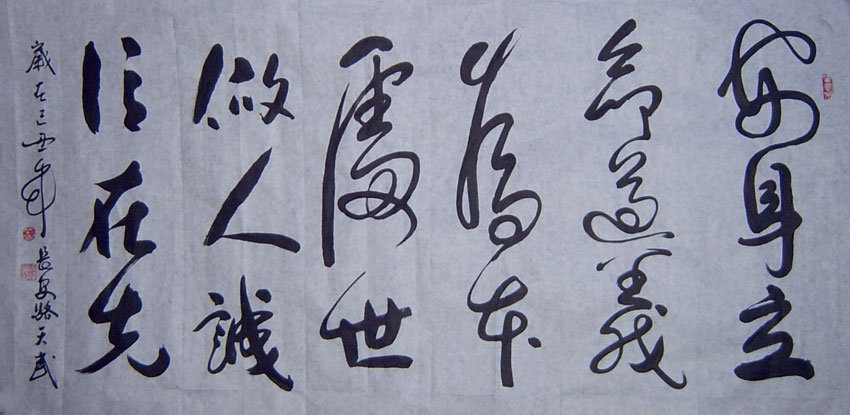 安身立
命道義
為本
處世
做人誠
信在先
歲在己丑年 長安路天武